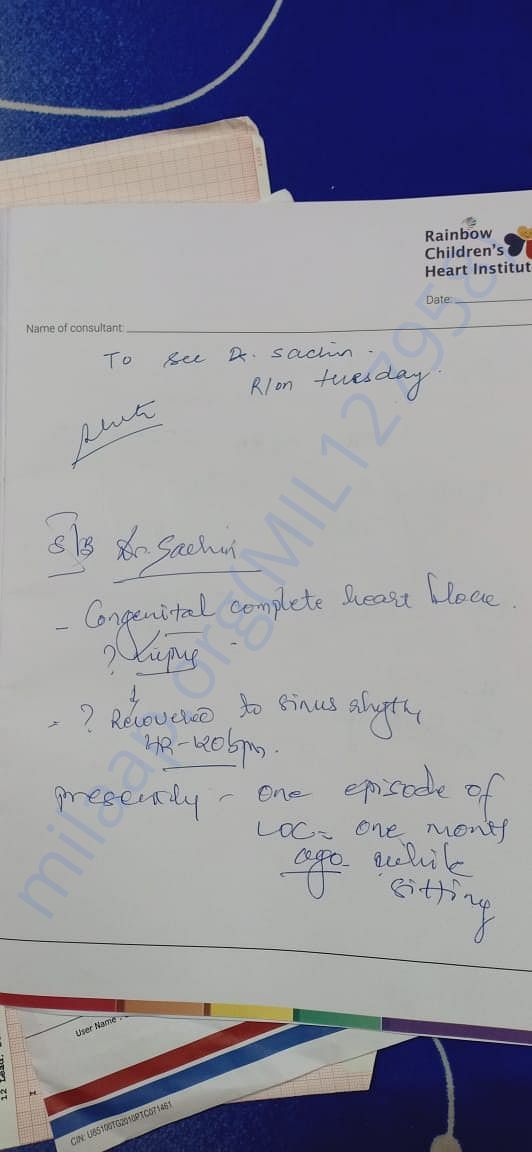 Rainbow
Children's
Heart Institut
Date:
Name of consultant:
To see Dr. Sachin.
R/on tuesday.
S/B Dr. Sachin
- Congenital complete heart block.
? Lupus
- ? Recovered to sinus rhythm
HR-120bpm.
presently - one episode of
LOC - one month
ago while
sitting
milaap.org(MIL127958)
User Name :
12 Lead.
CIN: U85100TG2010PTC071461